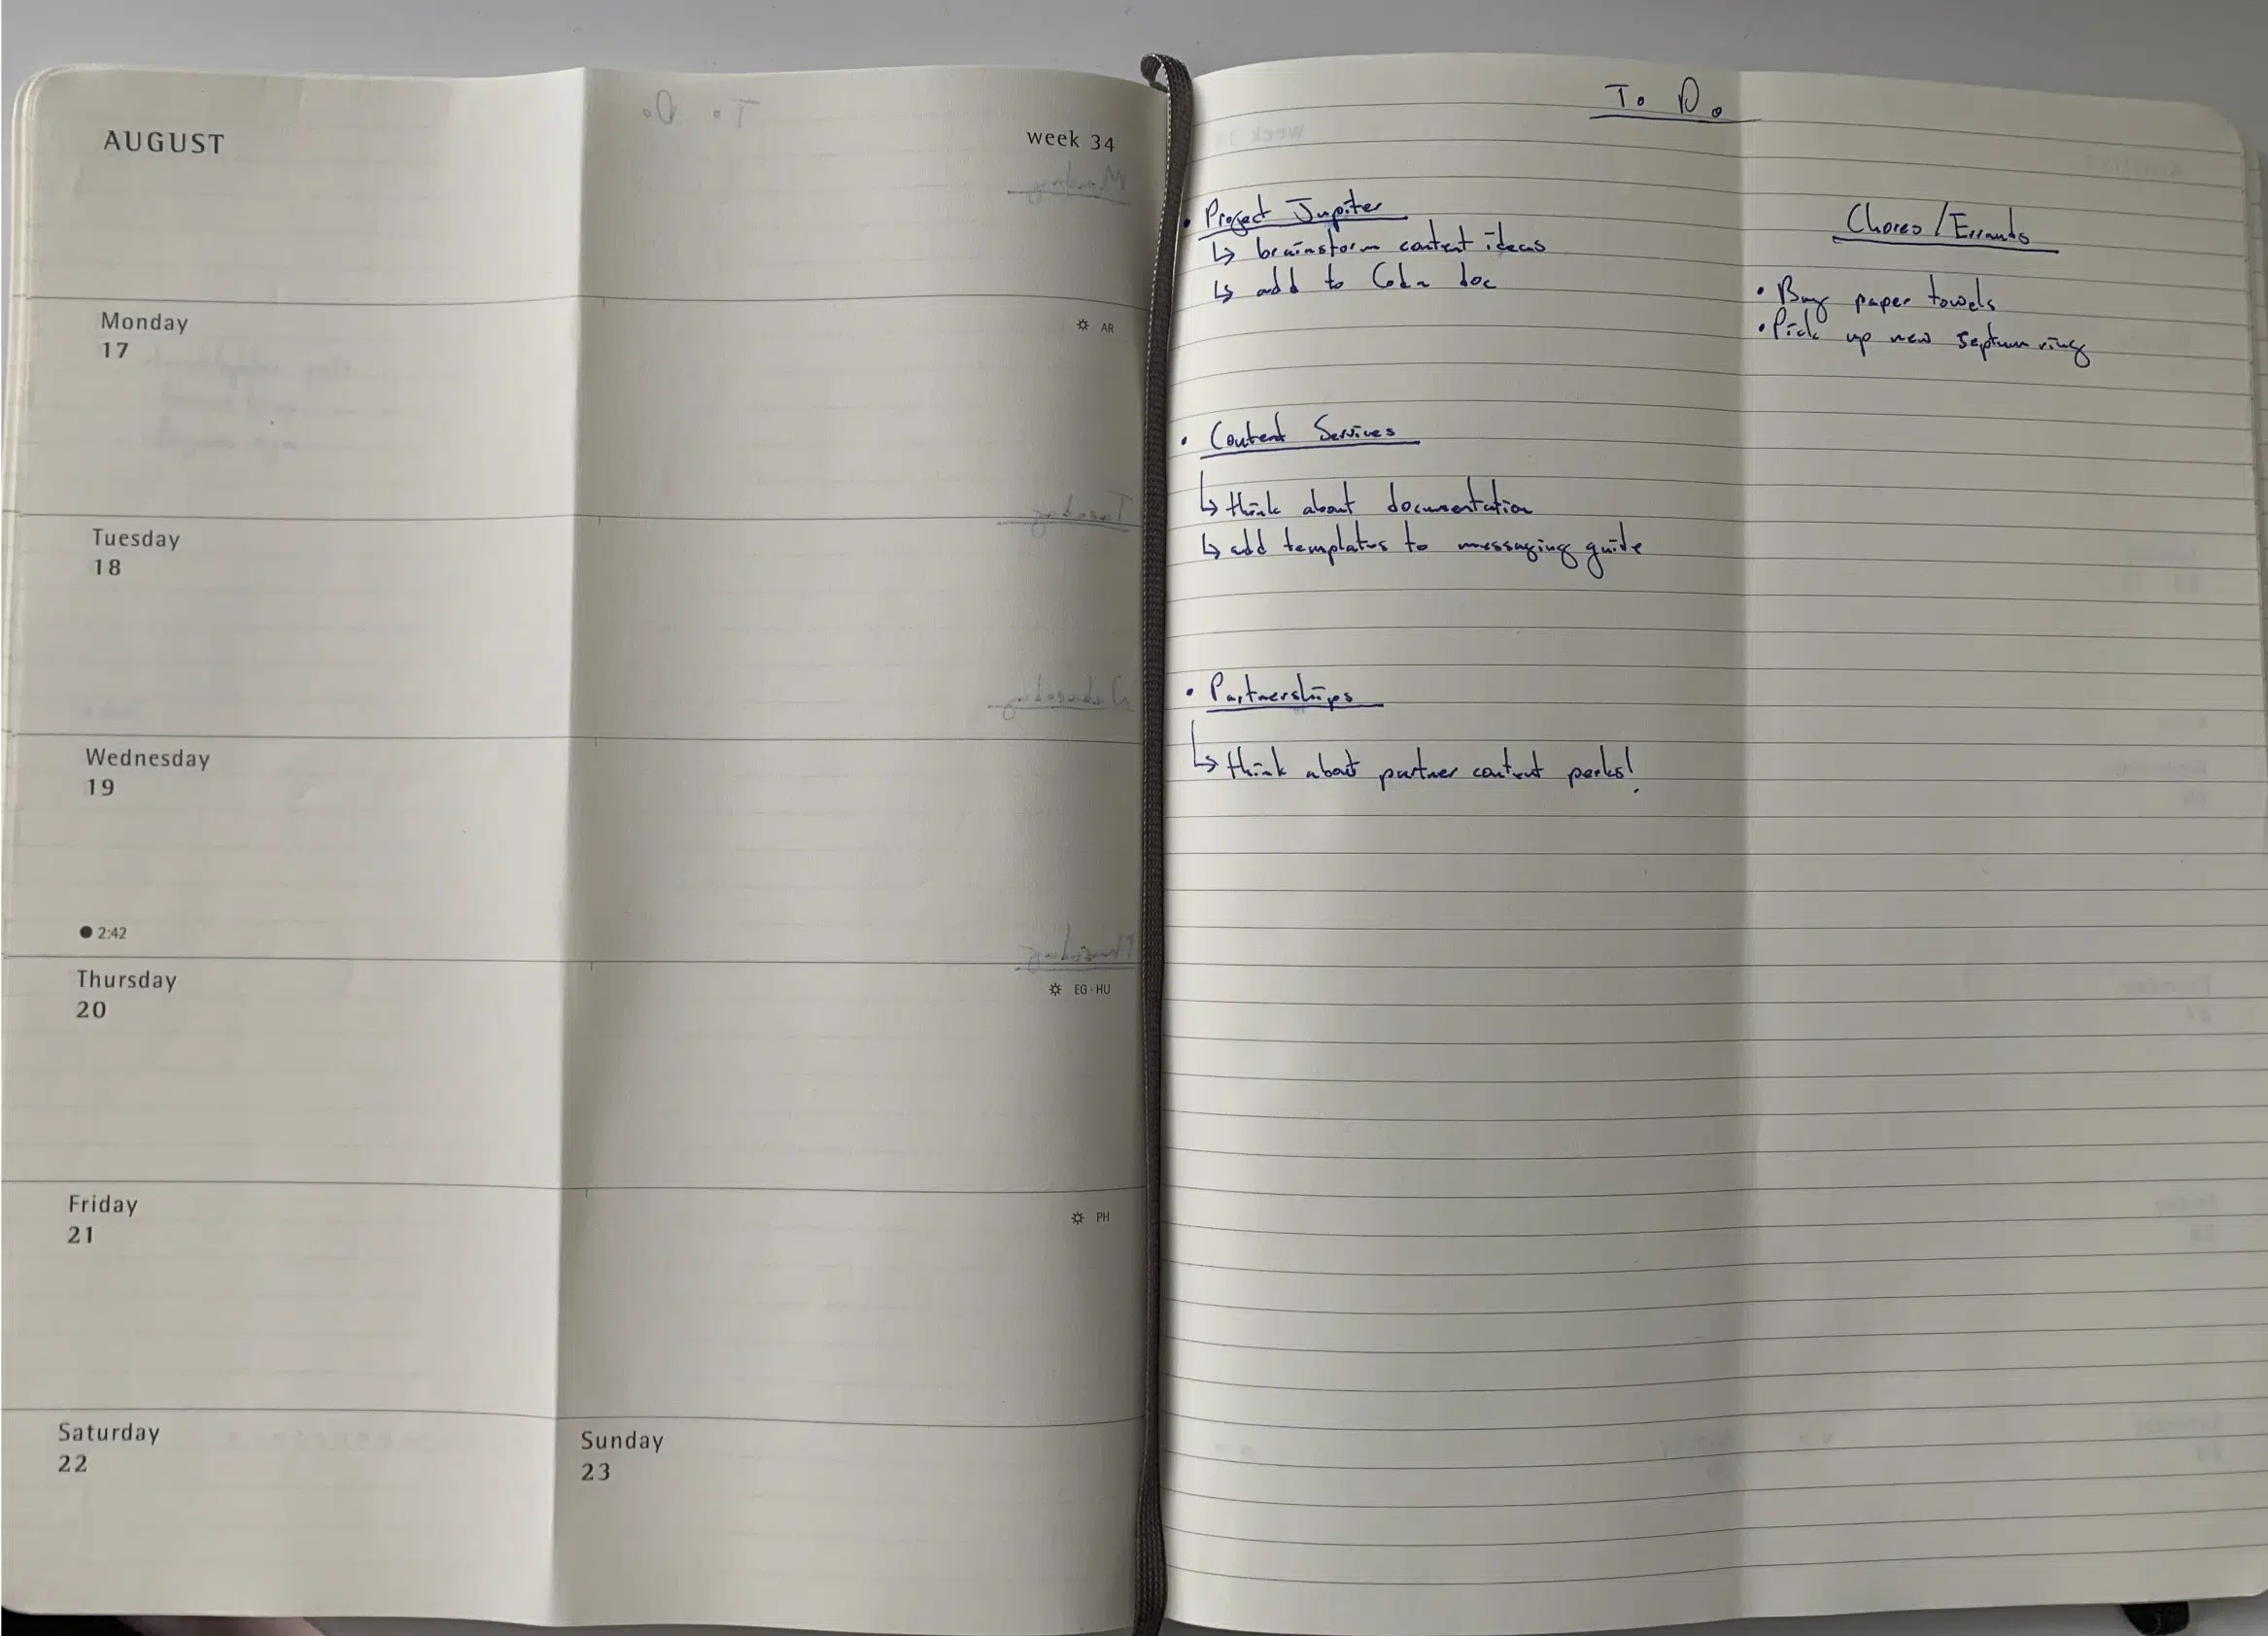 AUGUST
week 34
Monday
17
AR
Tuesday
18
Wednesday
19
2:42
Thursday
20
EG·HU
Friday
21
PH
Saturday
22
Sunday
23
To Do
• Project Jupiter
↳ brainstorm content ideas
↳ add to Coda doc
• Content Services
↳ think about documentation
↳ add templates to messaging guide
• Partnerships
↳ think about partner content perks!
Chores/Errands
• Buy paper towels
• Pick up new septum ring